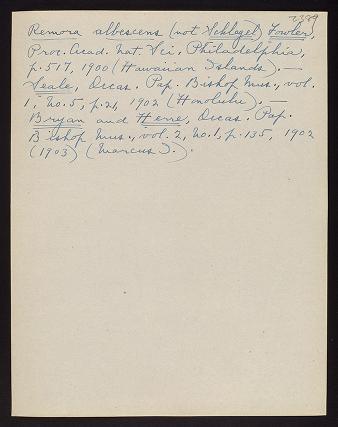 2384
Remora albescens (not Schlegel) Fowler,
Proc. Acad. Nat. Sci. Philadelphia,
p. 517, 1900 (Hawaiian Islands). —
Seale, Occas. Pap. Bishop Mus., vol.
1, no. 5, p. 21, 1902 (Honolulu). —
Bryan and Herre, Occas. Pap.
Bishop Mus., vol. 2, No. 1, p. 135, 1902
(1903) (Marcus I.).